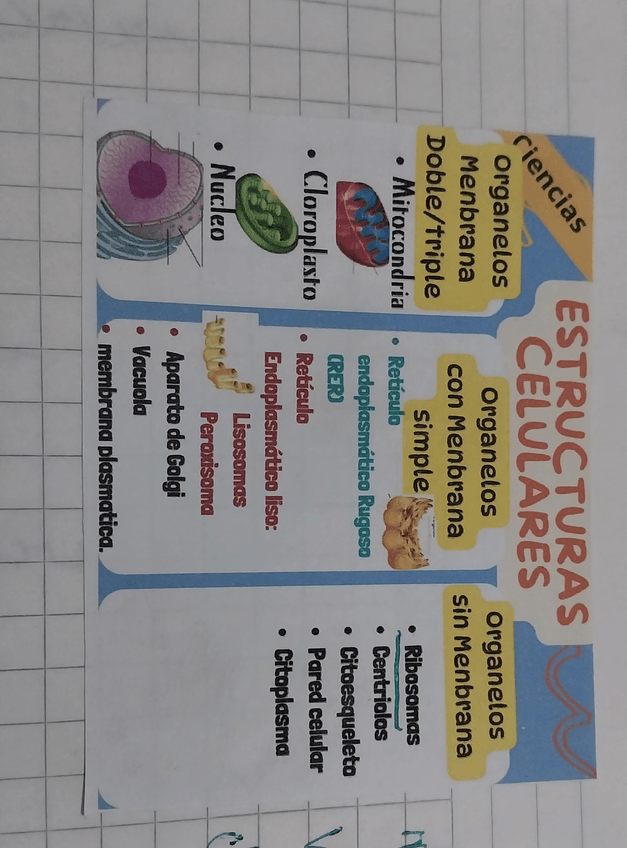 Ciencias
ESTRUCTURAS
CELULARES
Organelos
Menbrana
Doble/triple
• Mitocondria
• Cloroplasto
• Nucleo
Organelos
con Menbrana
simple
• Retículo
endoplasmático Rugoso
(RER)
• Retículo
Endoplasmático liso:
Lisosomas
Peroxisoma
• Aparato de Golgi
• Vacuola
• membrana plasmatica.
Organelos
sin Menbrana
• Ribosomas
• Centriolos
• Citoesqueleto
• Pared celular
• Citoplasma